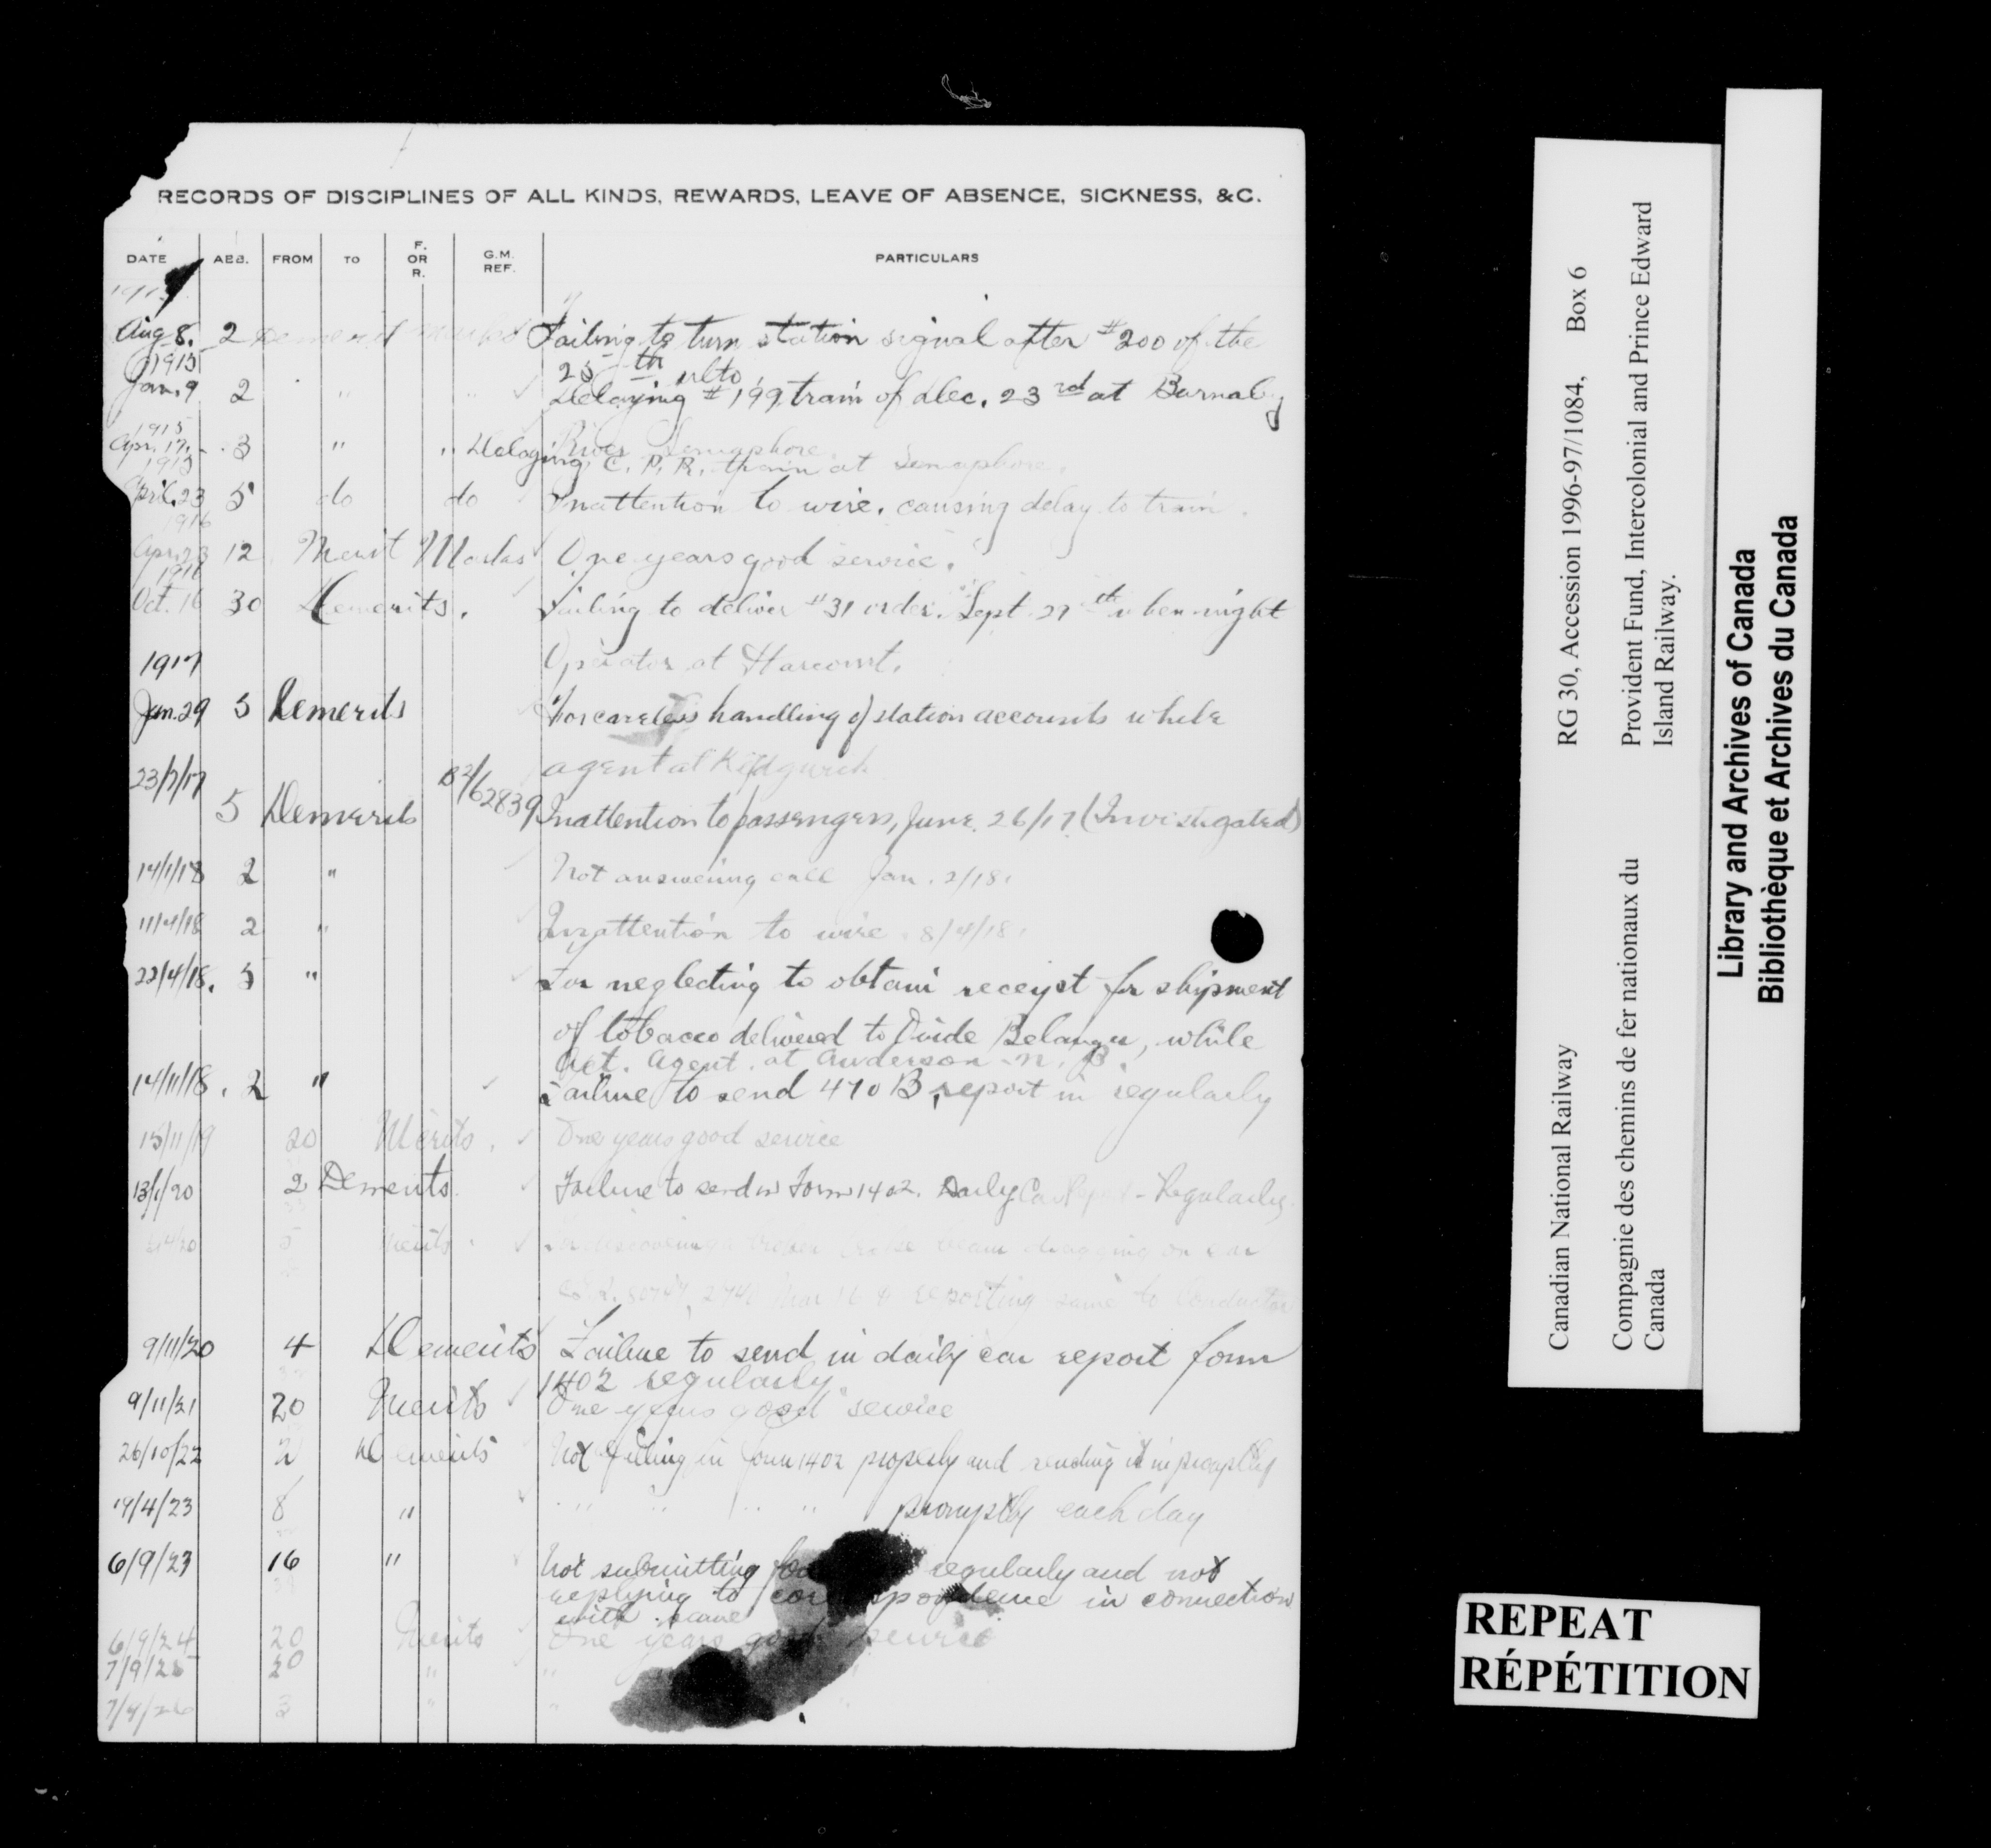 RECORDS OF DISCIPLINES OF ALL KINDS, REWARDS, LEAVE OF ABSENCE, SICKNESS, &C.
DATE AEB. FROM TO F. OR R. G.M. REF. PARTICULARS
Aug 8. 2 Demerit Marks Failing to turn station signal after #200 of the
25th ulto
1915
Jan. 9 2 " " Delaying #199 train of Dec. 23rd at Barnaby
River Semaphore.
1915
Apr. 17. 3 " " Delaying C. P. R. train at Semaphore.
1915
April 23 5 do do Inattention to wire, causing delay to train.
1916
Apr. 23 12 Merit Marks One years good service.
1916
Oct. 16 30 Demerits. Failing to deliver #31 order. Sept. 29th when night
Operator at Harcourt.
1917
Jan. 29 5 Demerits For careless handling of station accounts while
agent at
23/7/17 5 Demerits 2839 Inattention to passengers, June 26/17 (Investigated)
14/1/18 2 " Not answering call Jan. 2/18.
11/4/18 2 " Inattention to wire 8/4/18.
22/4/18. 5 " For neglecting to obtain receipt for shipment
of tobacco delivered to Belanger, while
Act. Agent. at Anderson N. B.
14/11/18. 2 " Failure to send 470B report in regularly
15/11/19 20 Merits. One years good service
13/1/20 2 Demerits. Failure to send in Form 1402. Daily Car Report - Regularly.
5 Merits. For discovering broken brake beam dragging on car
Mar 16 & reporting same to Conductor
9/11/20 4 Demerits Failure to send in daily car report form
1402 regularly
9/11/21 20 Merits One years good service
26/10/22 2 Demerits Not filling in form 1402 properly and sending it in promptly
19/4/23 8 " " " " " promptly each day
6/9/23 16 " Not submitting regularly and not
replying to correspondence in connection
with same
6/9/24 20 Merits One years good service
7/9/25 20 " "
3 " "
RG 30, Accession 1996-97/1084, Box 6
Canadian National Railway
Provident Fund, Intercolonial and Prince Edward
Island Railway.
Compagnie des chemins de fer nationaux du
Canada
Library and Archives of Canada
Bibliothèque et Archives du Canada
REPEAT
RÉPÉTITION